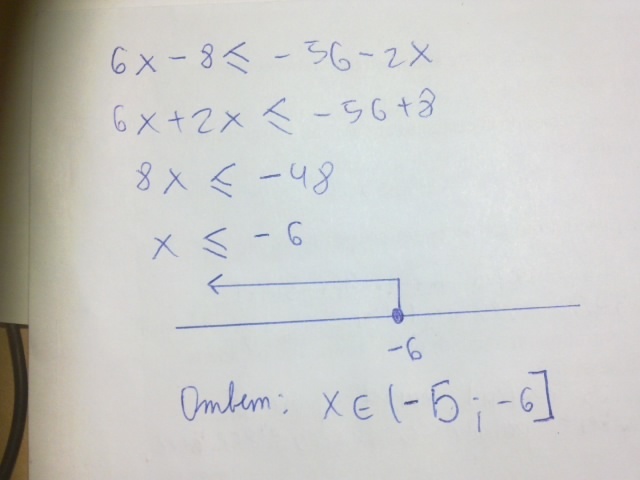 6x - 8 ≤ -56 - 2x
6x + 2x ≤ -56 + 8
8x ≤ -48
x ≤ -6
-6
Ответ: x ∈ (-Б; -6]